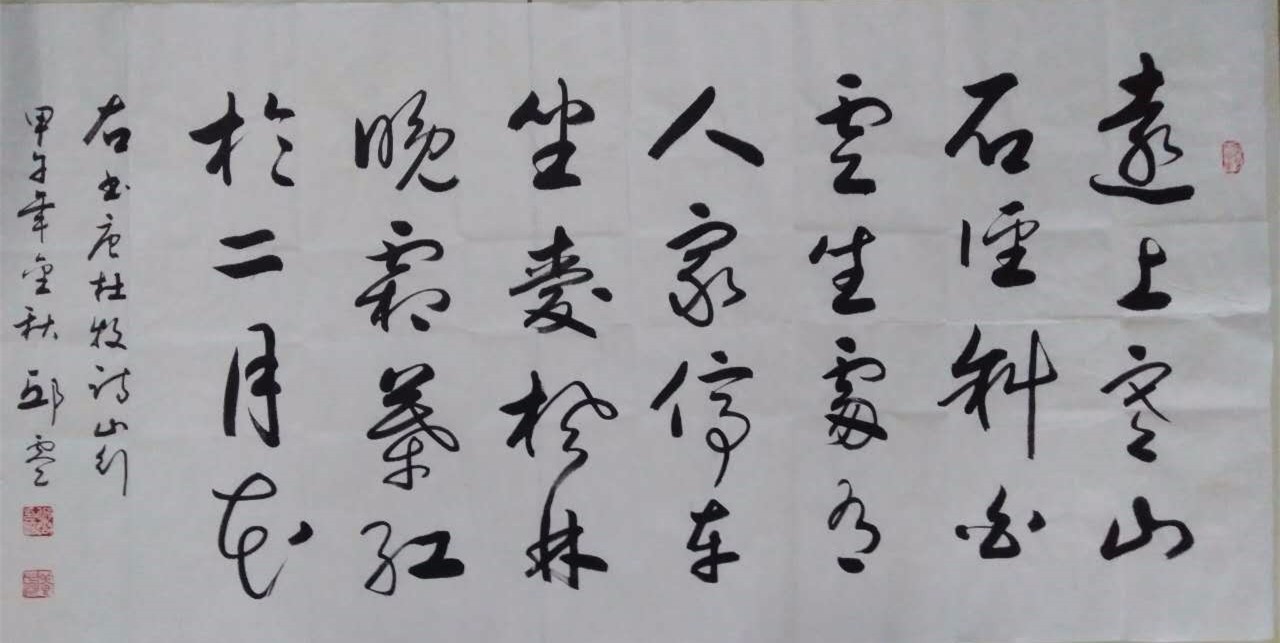 遠上寒山
石徑斜白
雲生處有
人家停車
坐愛楓林
晚霜葉紅
於二月花
右书唐杜牧诗山行
甲午年金秋邱雲